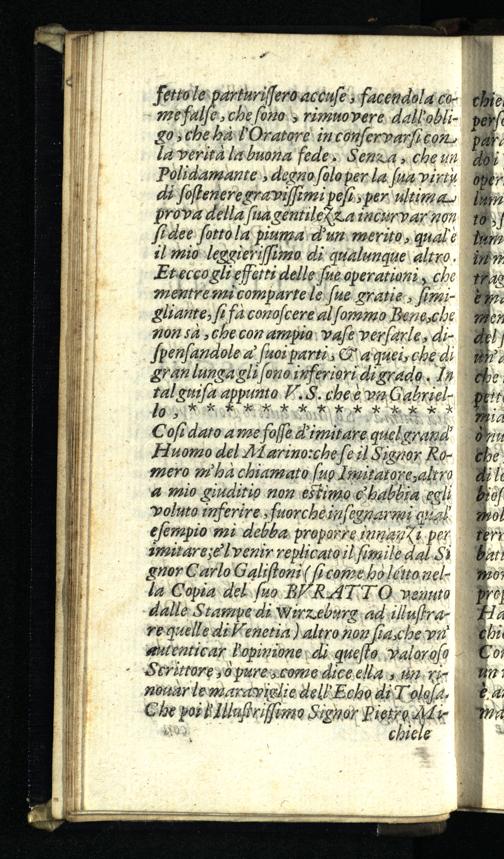 fetto le parturissero accuse, facendola co-
me false, che sono, rimuovere dall'obli-
go, che hà l'Oratore in conservarsi con
la verità la buona fede. Senza, che un
Polidamante, degno solo per la sua virtù
di sostenere gravissimi pesi, per ultima
prova della sua gentilezza incurvar non
si dee sotto la piuma d'un merito, qual'è
il mio leggierissimo di qualunque altro.
Et eccogli effetti delle sue operationi, che
mentre mi comparte le sue gratie, simi-
gliante, si fà conoscere al sommo Bene, che
non sà, che con ampio vase versarle, di-
spensandole a' suoi parti, & a quei, che di
gran lunga gli sono inferiori di grado. In
tal guisa appunto V. S. che è vn Gabriel-
lo, * * * * * * * * * * * * * *
Così dato a me fosse d'imitare quel grand'
Huomo del Marino: che se il Signor Ro-
mero m'hà chiamato suo Imitatore, altro
a mio giuditio non estimo c'habbia egli
voluto inferire, fuorche insegnarmi qual'
esempio mi debba proporre innanzi per
imitare; e'l venir replicato il simile dal Si
gnor Carlo Galistoni (si come ho letto nel-
la Copia del suo BVRATTO venuto
dalle Stampe di Wirzeburg ad illustra-
re quelle di Venetia) altro non sia, che vn'
autenticar l'opinione di questo valoroso
Scrittore, ò pure, come dice ella, un ri-
nouar le maraviglie dell'Echo di Tolosa.
Che poi l'Illustrissimo Signor Pietro Mi-
chiele